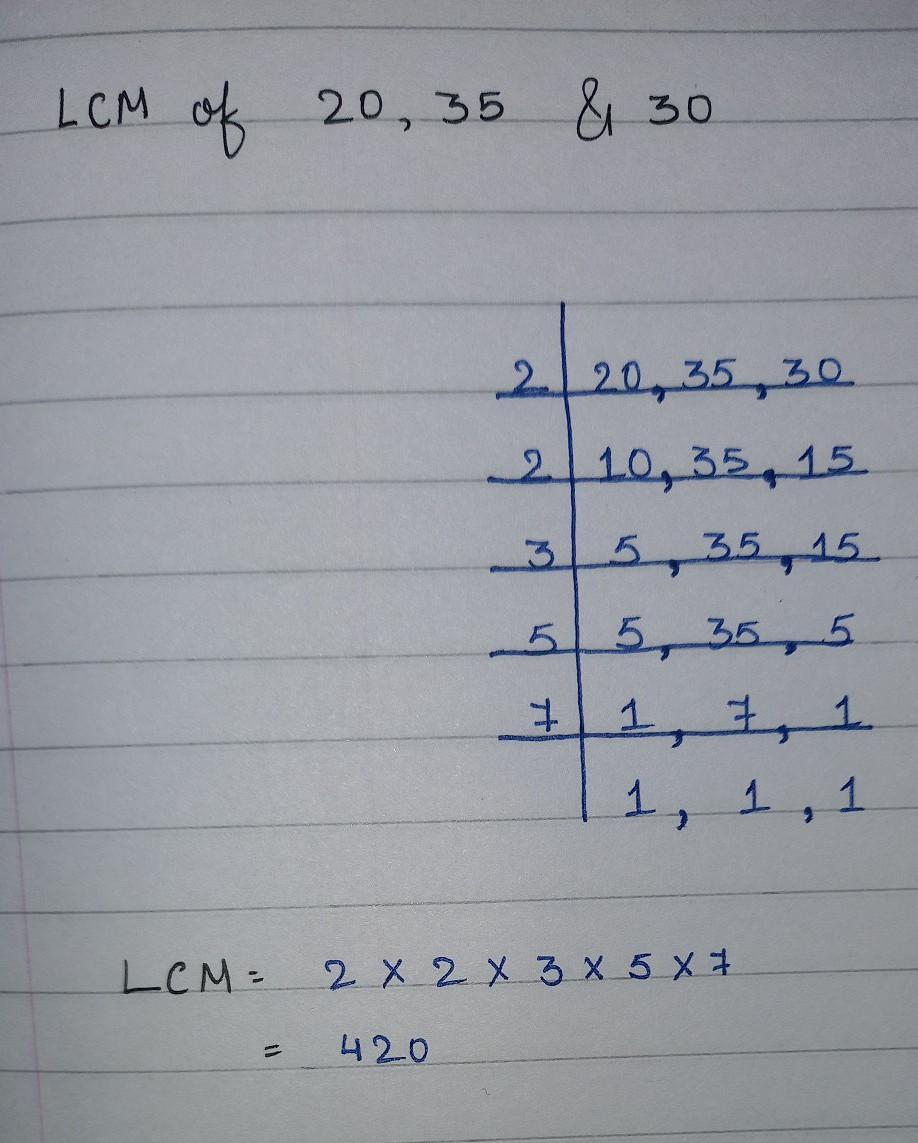 LCM of 20, 35 & 30
2 | 20, 35, 30
2 | 10, 35, 15
3 | 5, 35, 15
5 | 5, 35, 5
7 | 1, 7, 1
| 1, 1, 1
LCM = 2 × 2 × 3 × 5 × 7
= 420